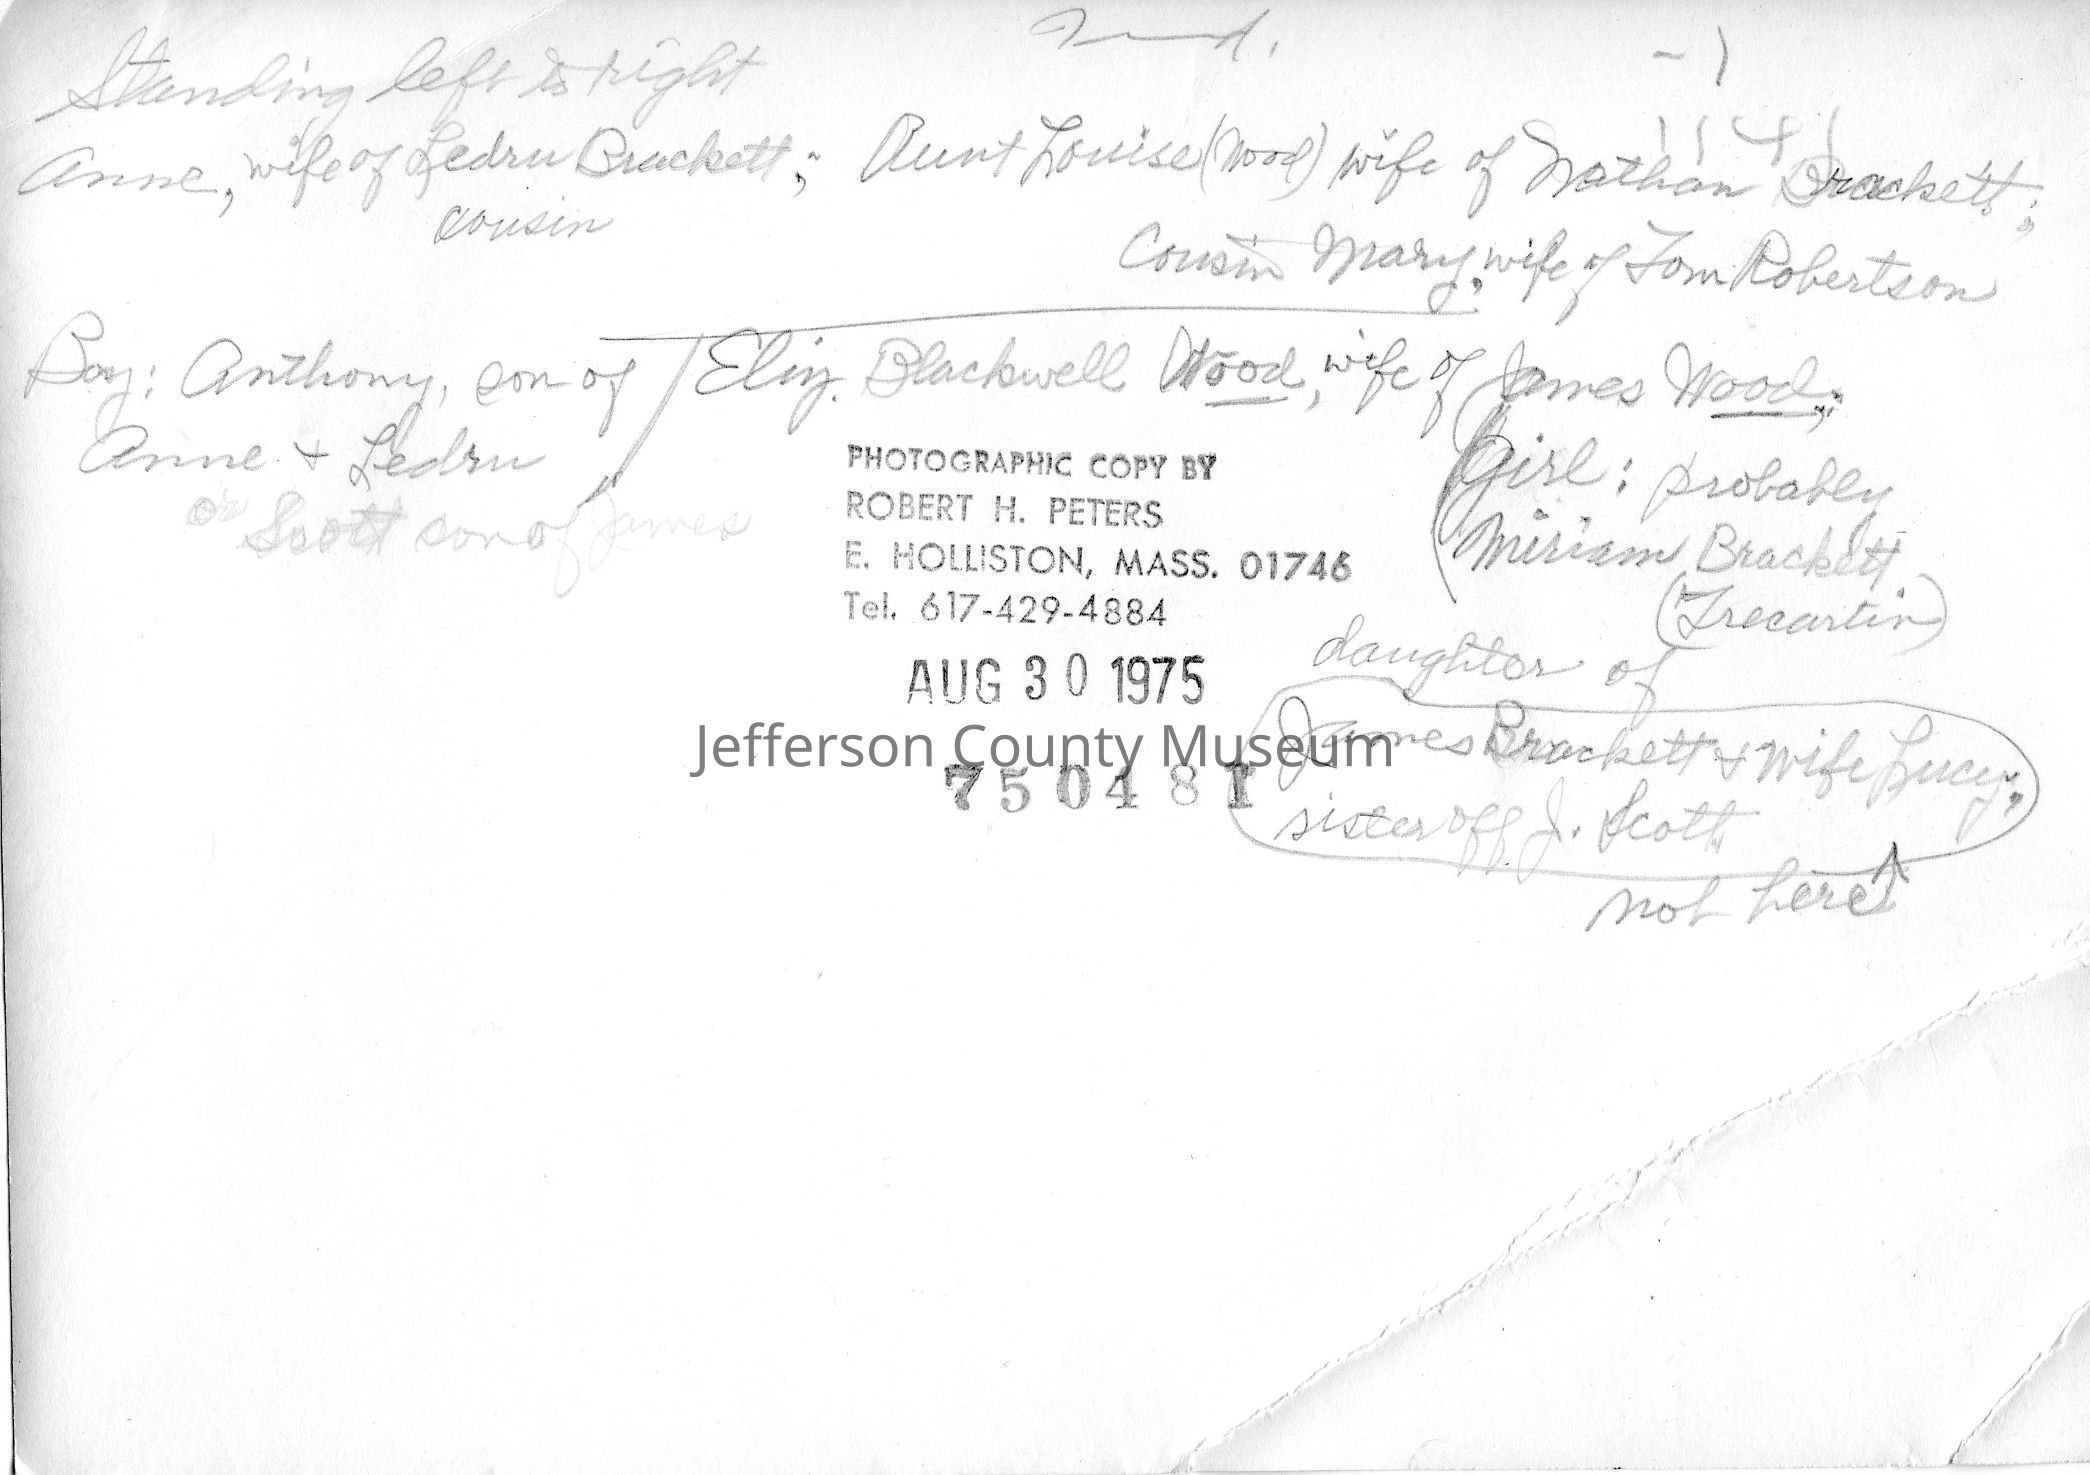 Standing left to right
Anne, wife of Ledru Brackett; Aunt Louise (Wood) wife of Nathan Brackett;
cousin
Cousin Mary, wife of Tom Robertson
Boy: Anthony, son of / Eliz. Blackwell Wood, wife of James Wood;
Anne + Ledru
or Scott son of James
Girl: probably
Miriam Brackett
(Trecartin)
daughter of
James Brackett + wife Lucy;
sister off J. Scott
not here
PHOTOGRAPHIC COPY BY
ROBERT H. PETERS
E. HOLLISTON, MASS. 01746
Tel. 617-429-4884
AUG 30 1975
Jefferson County Museum
750481